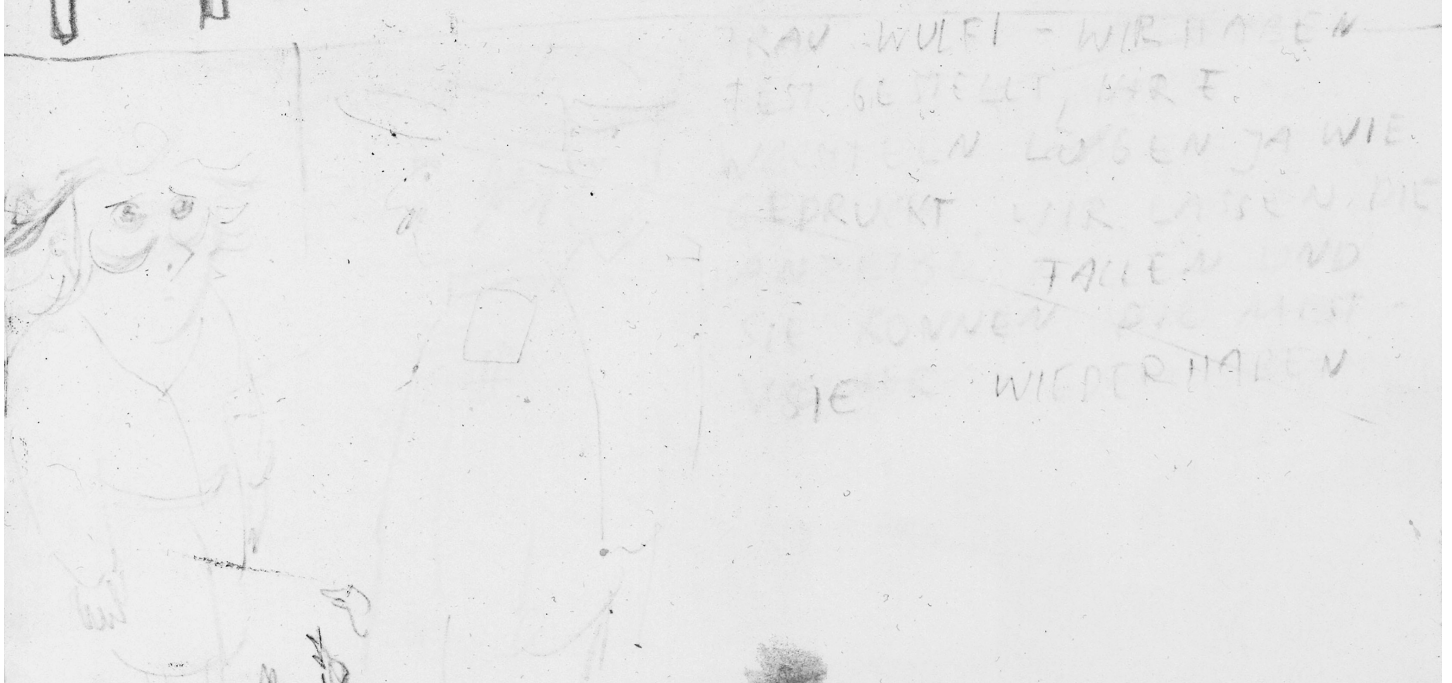 FRAU WULFI - WIR HABEN
FEST GESTELLT, IHRE
WICHTELN LÜGEN JA WIE
GEDRUKT WIR LASSEN DIE
FALLEN UND
SIE KÖNNEN DIE MIST-
SIE WIEDERHABEN